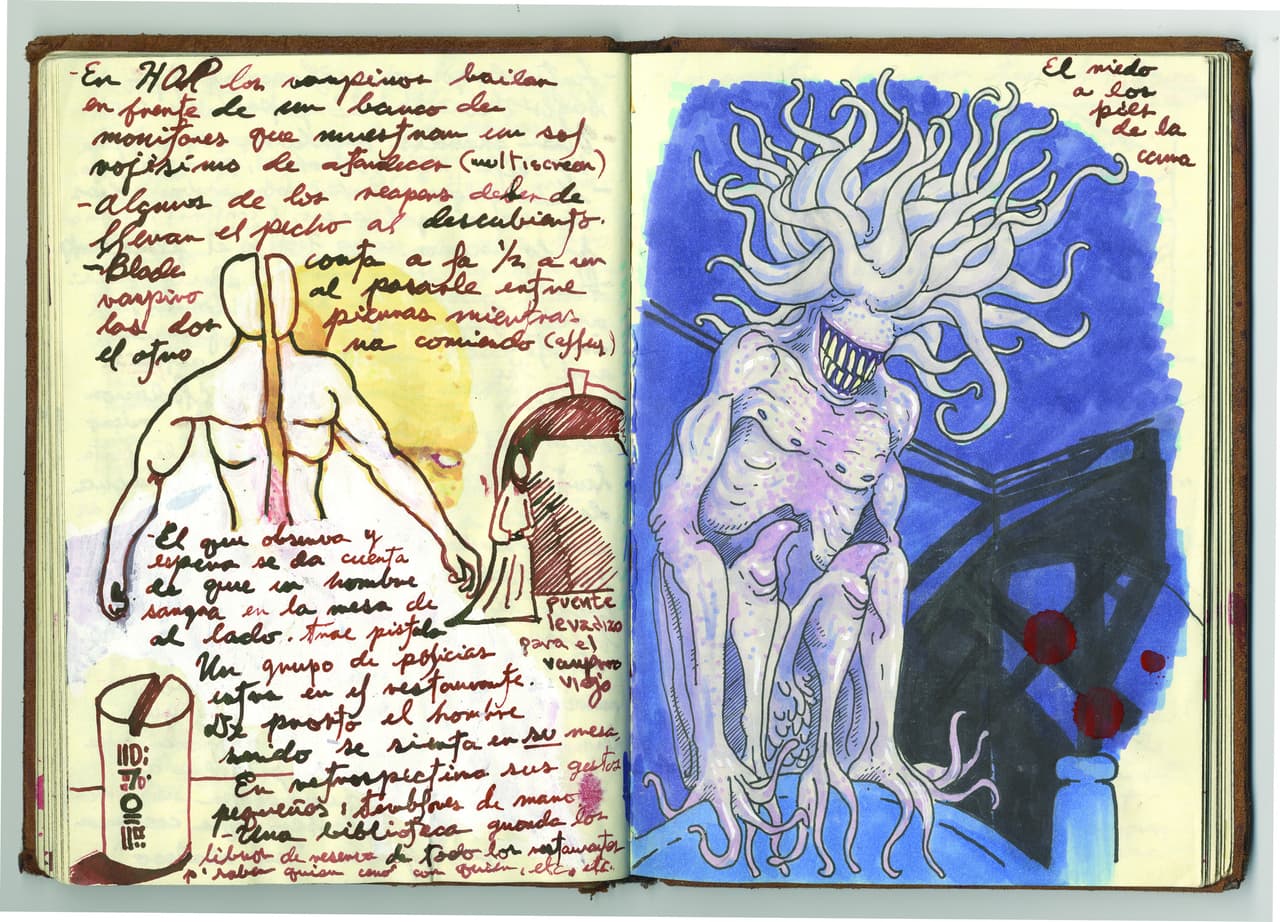 -En HOP los vampiros bailan
en frente de un banco de
monitores que muestran un sol
rojísimo de atardecer (multiscreen)
-Algunos de los reapers deben de
llevan el pecho al descubierto.
-Blade corta a la 1/2 a un
vampiro al pasarle entre
las dos piernas mientras
el otro va corriendo (effex)
-El que observa y
espera se da cuenta
de que un hombre
sangra en la mesa de
al lado. Trae pistola
Un grupo de policias
estan en el restaurante.
De pronto el hombre
se sienta en su mesa.
En retrospectiva sus gestos
pequeños, temblores de mano
-Una biblioteca guarda los
libros de reserva de todo los restaurantes
p' saber quien ceno con quien, etc, etc.
puente
levadizo
para el
vampiro
viejo
El miedo
a los
pies
de la
cama